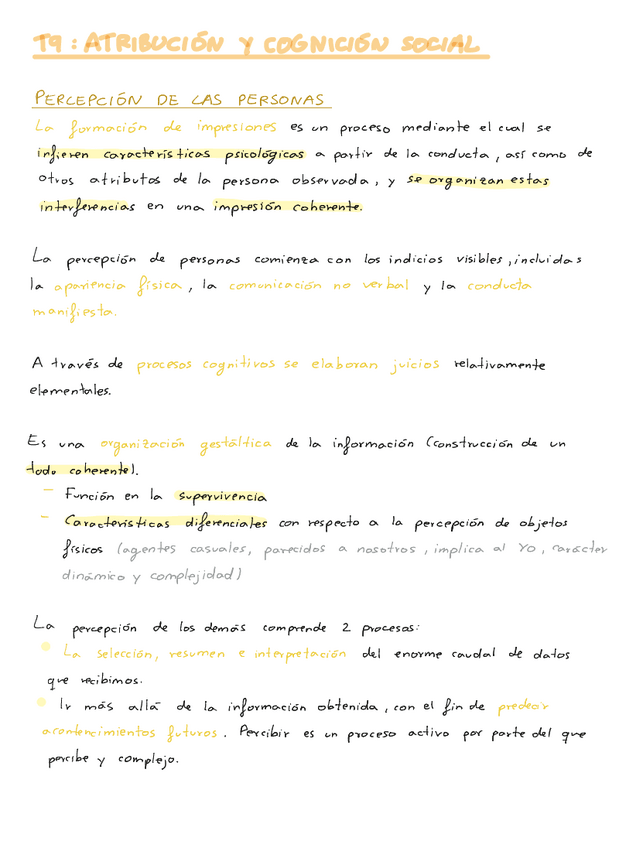 T9: ATRIBUCIÓN Y COGNICIÓN SOCIAL
PERCEPCIÓN DE LAS PERSONAS
La formación de impresiones es un proceso mediante el cual se
infieren características psicológicas a partir de la conducta, así como de
otros atributos de la persona observada, y se organizan estas
interferencias en una impresión coherente.
La percepción de personas comienza con los indicios visibles, incluidas
la apariencia física, la comunicación no verbal y la conducta
manifiesta.
A través de procesos cognitivos se elaboran juicios relativamente
elementales.
Es una organización gestáltica de la información (construcción de un
todo coherente).
- Función en la supervivencia
- Características diferenciales con respecto a la percepción de objetos
físicos (agentes casuales, parecidos a nosotros, implica al YO, carácter
dinámico y complejidad)
La percepción de los demás comprende 2 procesos:
• La selección, resumen e interpretación del enorme caudal de datos
que recibimos.
• Ir más allá de la información obtenida, con el fin de predecir
acontencimientos futuros. Percibir es un proceso activo por parte del que
percibe y complejo.